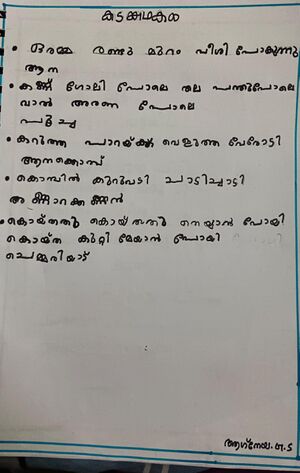 കടങ്കഥകൾ
• ഒരമ്മ രണ്ടു മുറം വീശി പോകുന്നു
ആന
• കണ്ണ് ഗോലി പോലെ തല പന്തുപോലെ
വാൽ അരണ പോലെ
പൂച്ച
• കറുത്ത പാറയ്ക്ക് വെളുത്ത വേരോടി
ആനക്കൊമ്പ്
• കൊമ്പിൽ കുറുവടി ചാടിച്ചാടി
അണ്ണാറക്കണ്ണൻ
• കൊയ്തതു കൊയ്തതു നെയ്യാൻ പോയി
കൊയ്ത കുറ്റി മേയാൻ പോയി
ചെമ്മരിയാട്
ആഗ്നേയ. ജി. S